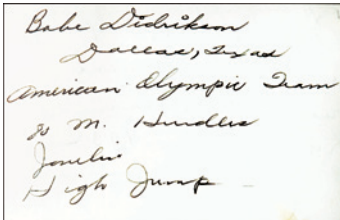 Babe Didrikson
Dallas, Texas
American Olympic Team
80 M. Hurdles
Javelin
High Jump